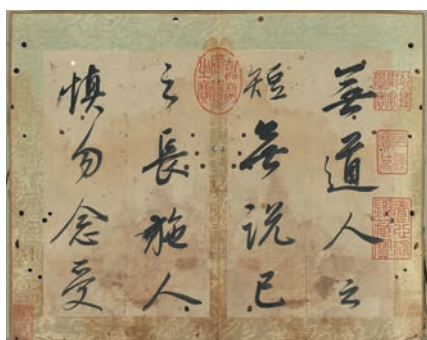 無道人之
短無说己
之長施人
慎勿念受